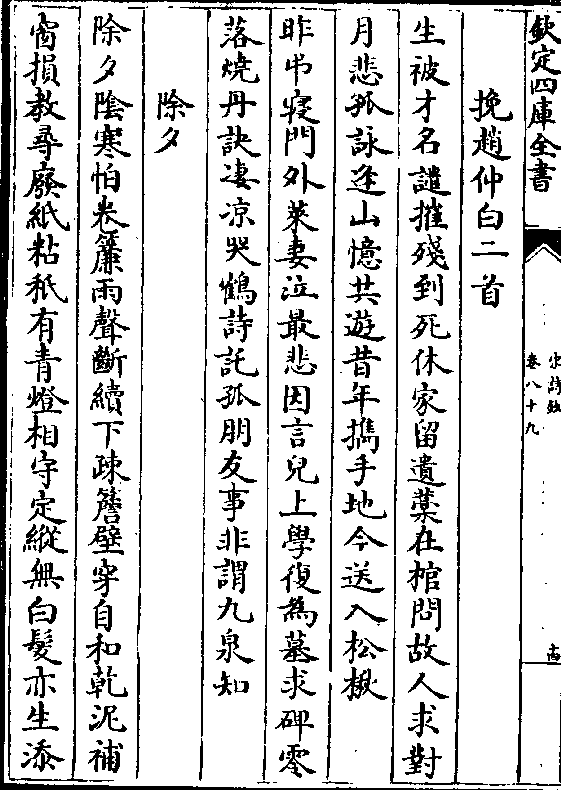 欽定四庫全書
宋詩鈔
卷八十九
十四
挽趙仲白二首
生被才名譴摧殘到死休家留遺藁在棺問故人求對
月悲孤詠逢山憶共遊昔年攜手地今送入松楸
昨弔寢門外萊妻泣最悲因言兒上學復為墓求碑零
落燒丹訣凄凉哭鶴詩託孤朋友事非謂九泉知
除夕
除夕隂寒怕卷簾雨聲斷續下疎簷壁穿自和乾泥補
窗損教尋廢紙粘秪有青燈相守定縱無白髮亦生添